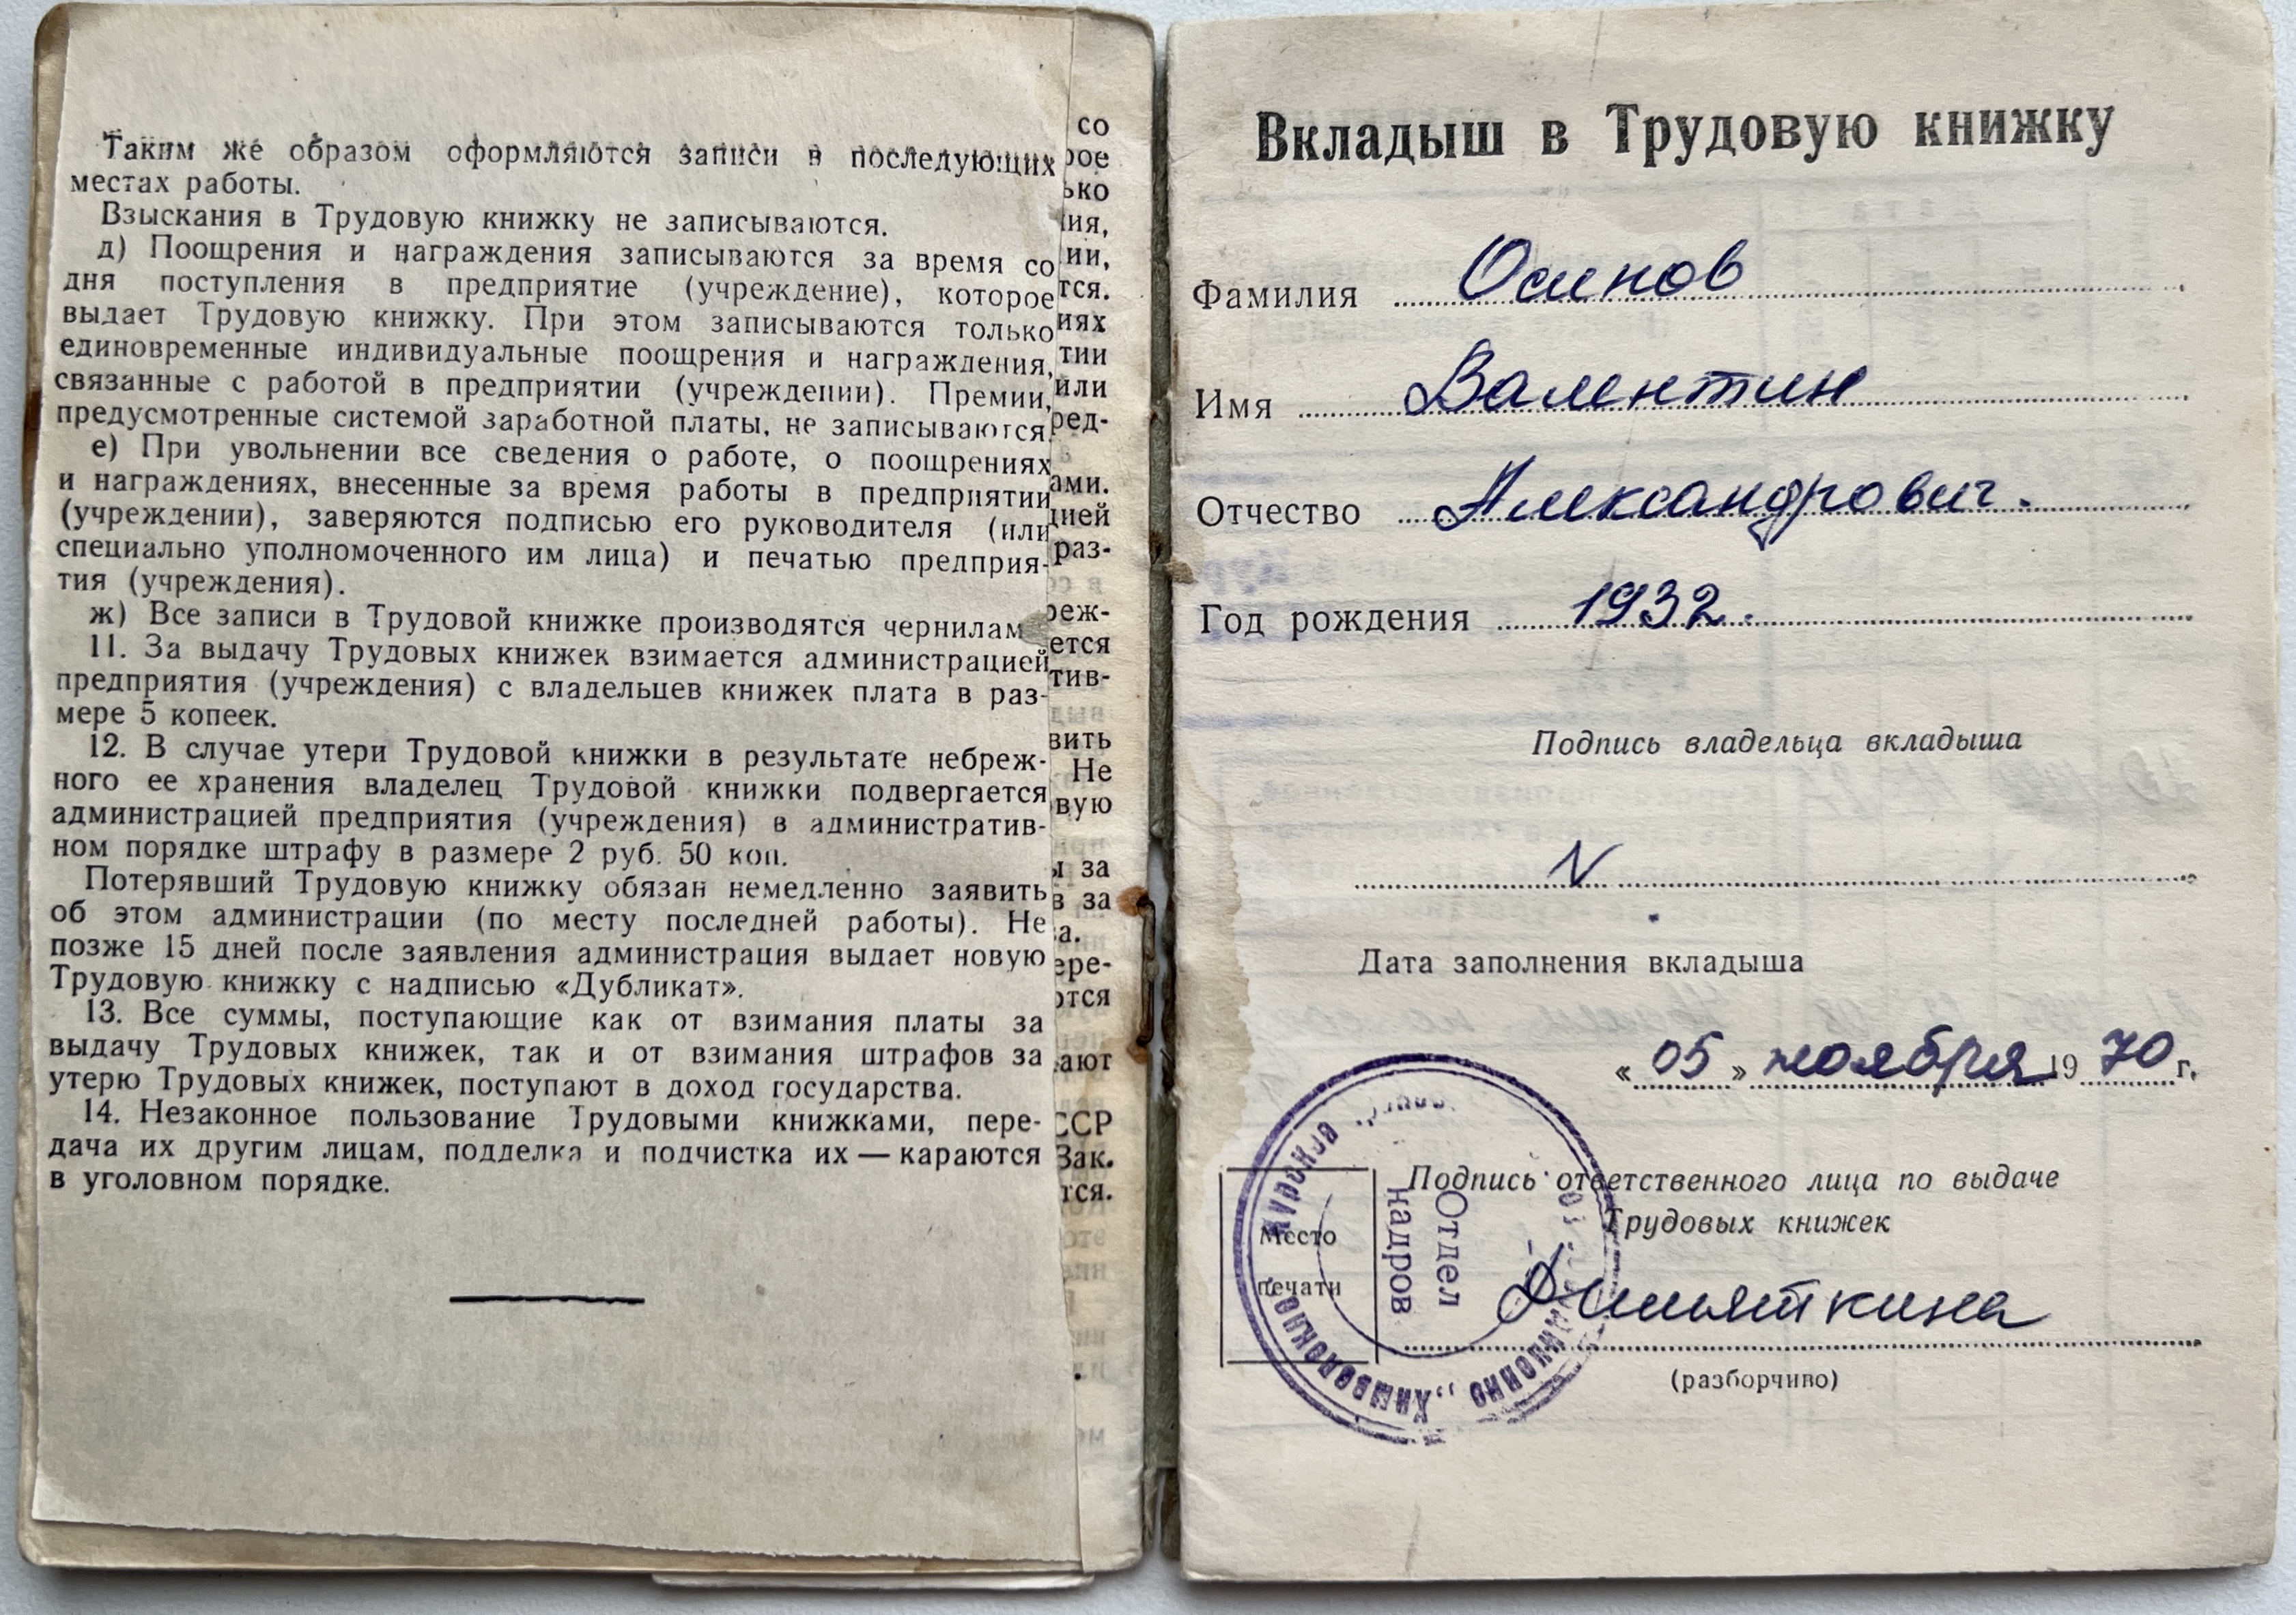 Таким же образом оформляются записи в последующих
местах работы.
Взыскания в Трудовую книжку не записываются.
д) Поощрения и награждения записываются за время со
дня поступления в предприятие (учреждение), которое
выдает Трудовую книжку. При этом записываются только
единовременные индивидуальные поощрения и награждения,
связанные с работой в предприятии (учреждении). Премии,
предусмотренные системой заработной платы, не записываются.
е) При увольнении все сведения о работе, о поощрениях
и награждениях, внесенные за время работы в предприятии
(учреждении), заверяются подписью его руководителя (или
специально уполномоченного им лица) и печатью предприя-
тия (учреждения).
ж) Все записи в Трудовой книжке производятся чернилам
11. За выдачу Трудовых книжек взимается администрацией
предприятия (учреждения) с владельцев книжек плата в раз-
мере 5 копеек.
12. В случае утери Трудовой книжки в результате небреж-
ного ее хранения владелец Трудовой книжки подвергается
администрацией предприятия (учреждения) в административ-
ном порядке штрафу в размере 2 руб. 50 коп.
Потерявший Трудовую книжку обязан немедленно заявить
об этом администрации (по месту последней работы). Не
позже 15 дней после заявления администрация выдает новую
Трудовую книжку с надписью «Дубликат».
13. Все суммы, поступающие как от взимания платы за
выдачу Трудовых книжек, так и от взимания штрафов за
утерю Трудовых книжек, поступают в доход государства.
14. Незаконное пользование Трудовыми книжками, пере-
дача их другим лицам, подделка и подчистка их — караются
в уголовном порядке.
со
рое
ько
ия,
ии,
тся.
иях
тии
или
ред-
ами.
цией
раз-
реж-
ется
тив-
вить
Не
вую
ы за
в за
ва.
ере-
ются
ают
ССР
Зак.
тся.
Вкладыш в Трудовую книжку
Фамилия Осипов
Имя Валентин
Отчество Александрович.
Год рождения 1932.
Подпись владельца вкладыша
Дата заполнения вкладыша
«05» ноября 1970 г.
Подпись ответственного лица по выдаче
Трудовых книжек
Место
печати
Отдел
кадров
(разборчиво)